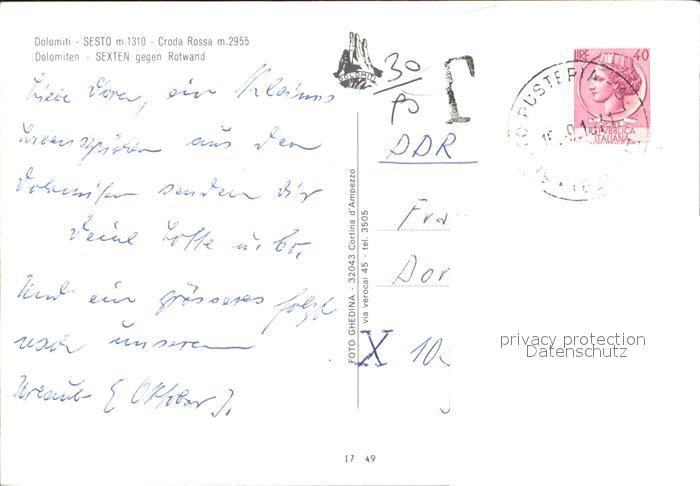 Dolomiti - SESTO m.1310 - Croda Rossa m.2955
Dolomiten - SEXTEN gegen Rotwand
Liebe Dora, ein kleines
Lebenszeichen aus den
Dolomiten senden Dir
Deine Lotte u.
Und ein grösseres folgt
nach unserem
Urlaub (Oktober).
FOTO GHEDINA - 32043 Cortina d'Ampezzo
via verocai 45 - tel. 3505
DOLOMITI
30
T
LIRE 40
REPVBBLICA
ITALIANA
PUSTERIA
DDR
Fra
Dor
X 10
privacy protection
Datenschutz
17 49